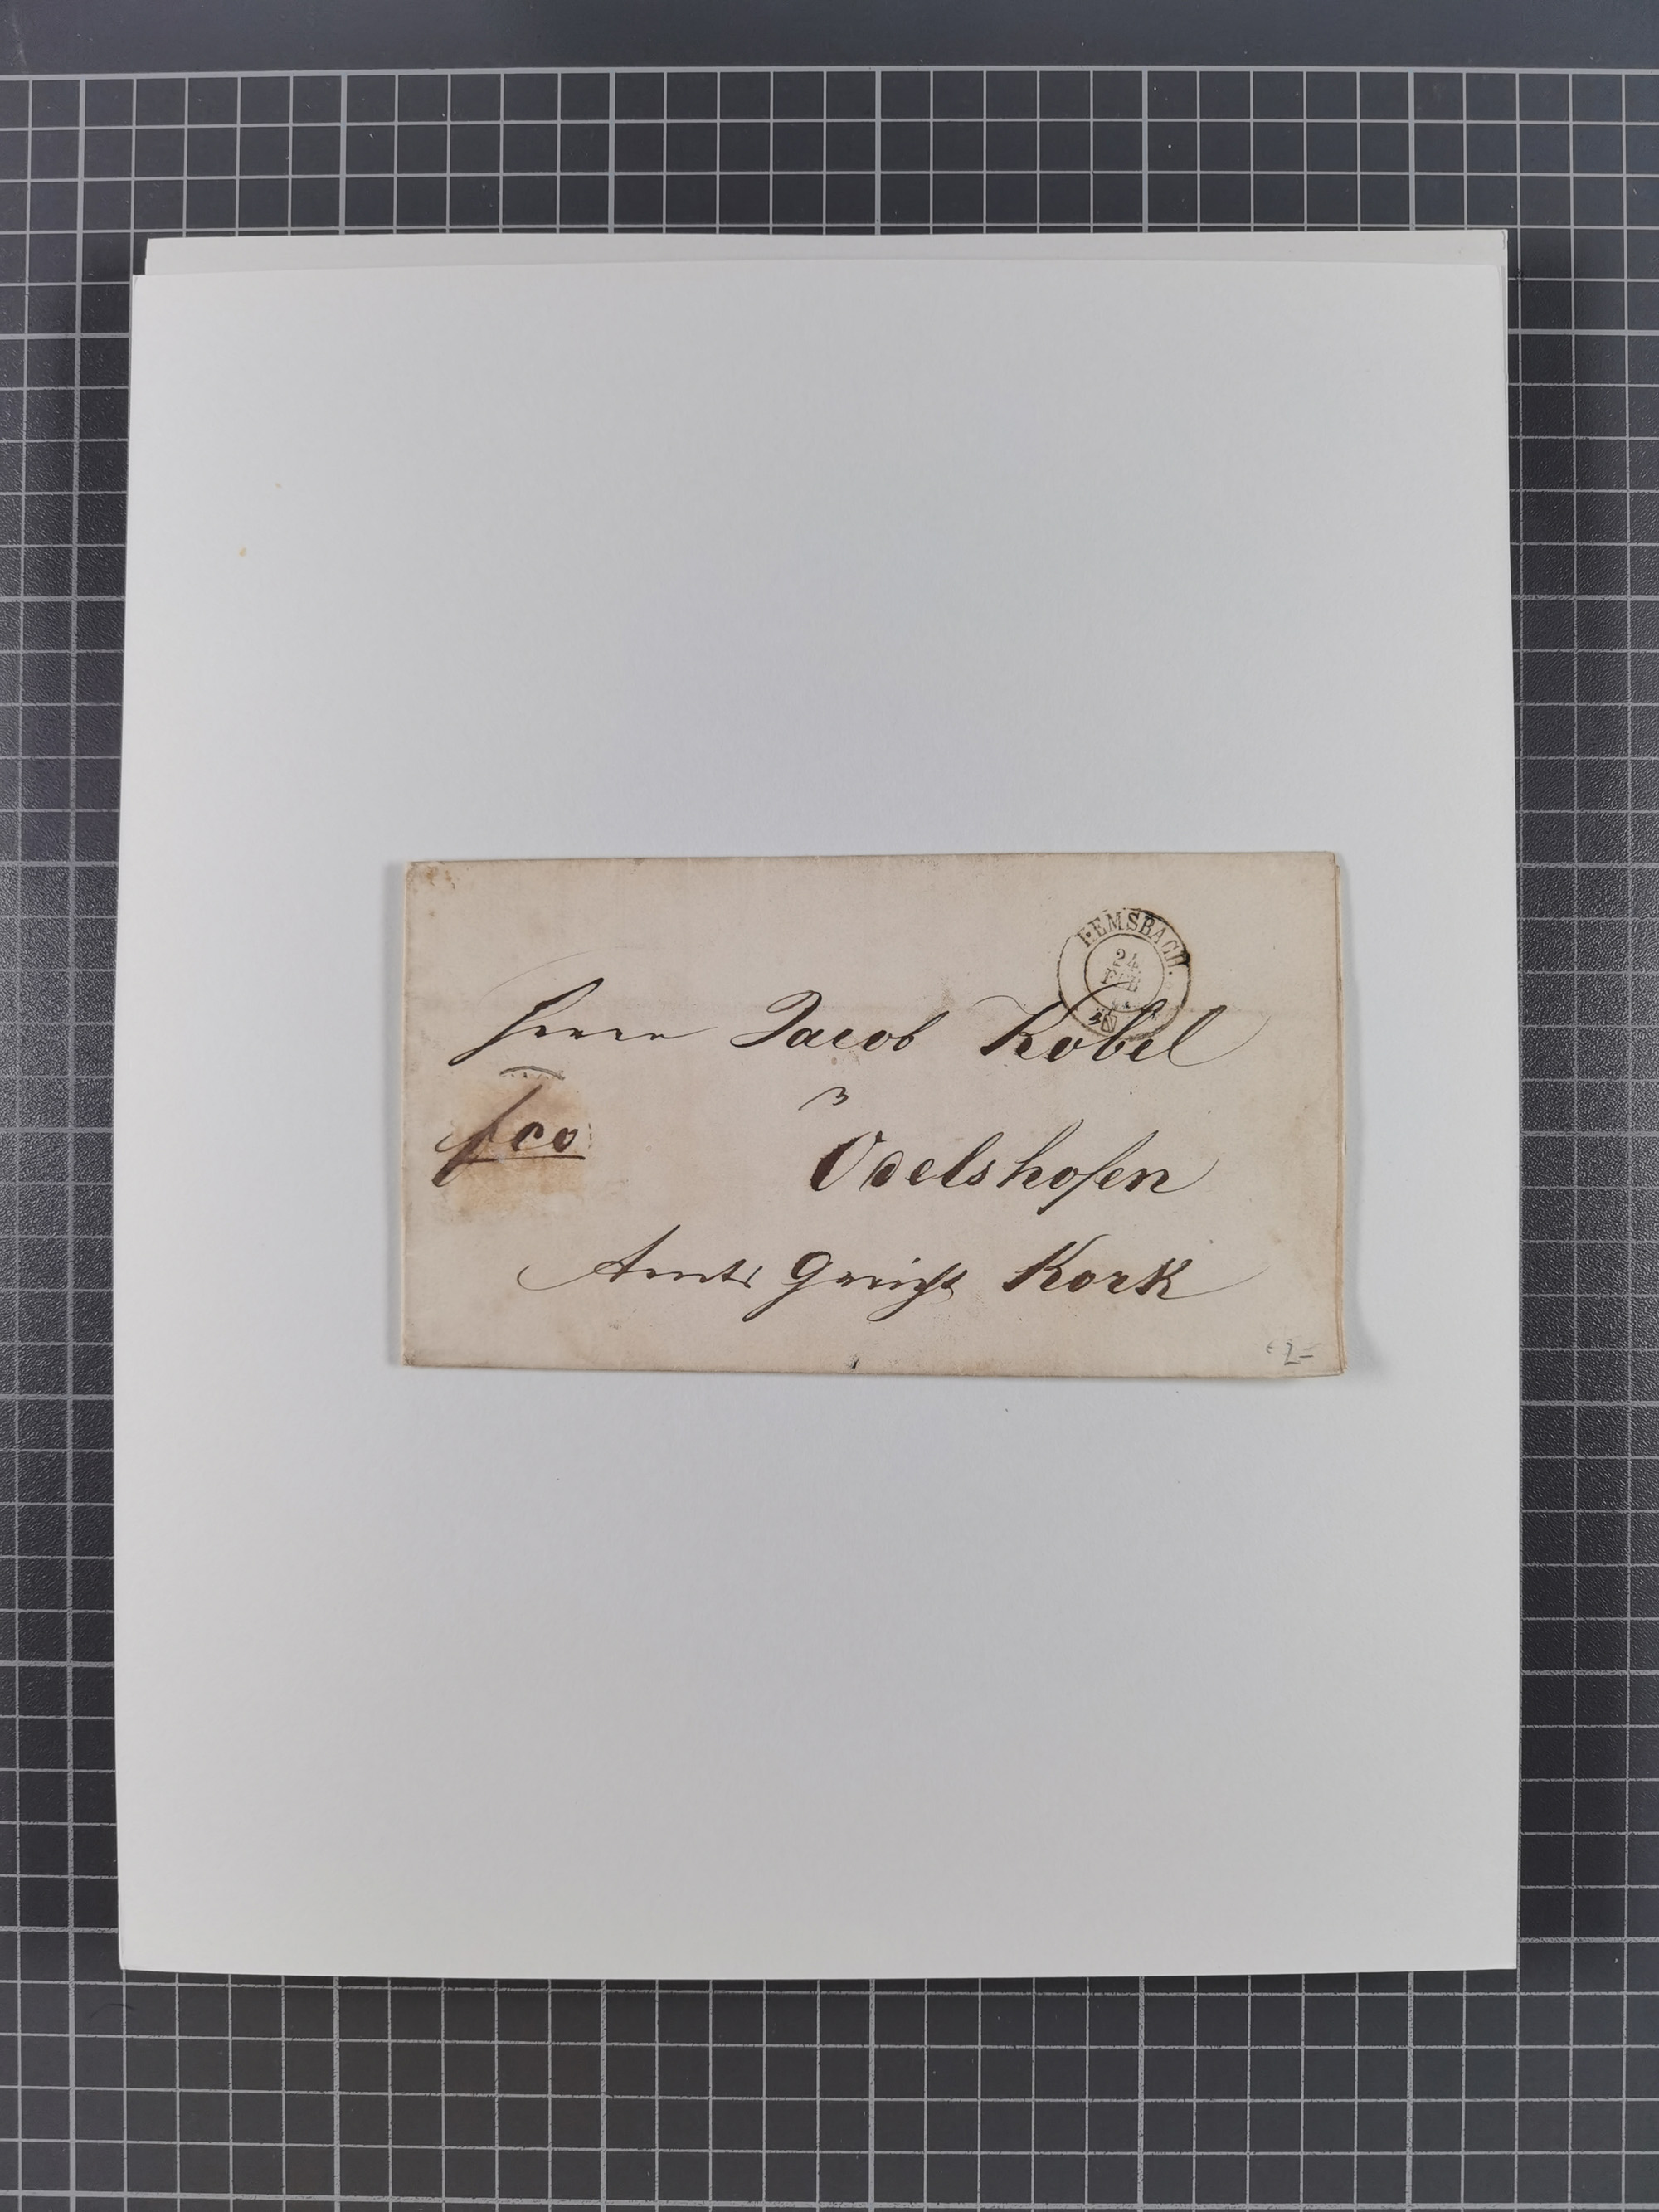 REMSBACH.
24
FEB
Herrn Jacob Kobel
fco
3
Odelshofen
Amts Gericht Kork